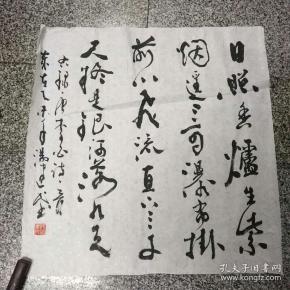 日照香爐生紫
烟遥看瀑布掛
前川飛流直下三千
尺疑是銀河落九天
唐李白詩一首
孔夫子旧书网